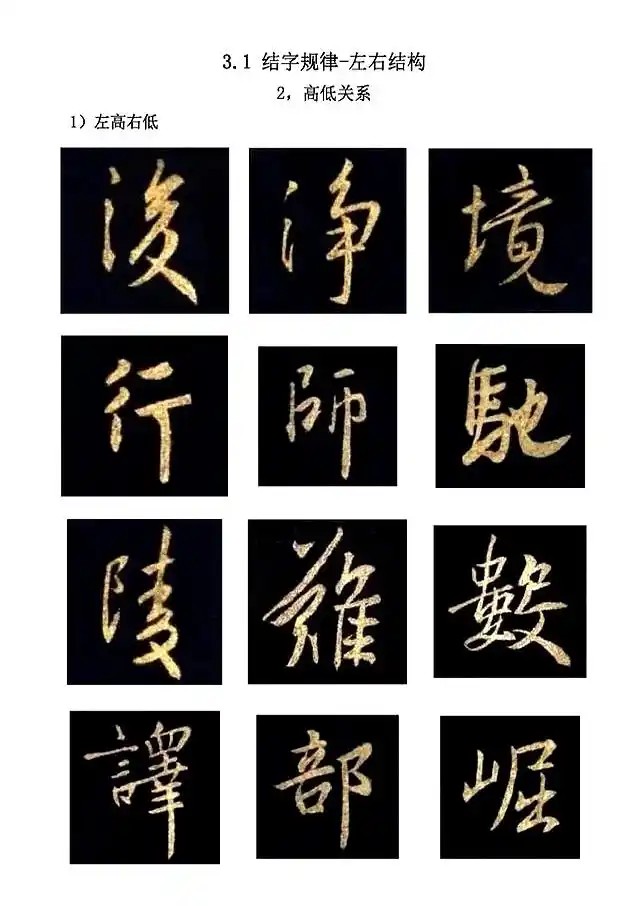 3.1 结字规律-左右结构
2，高低关系
1）左高右低
後 浄 境
行 師 馳
陵 難 數
譯 部 崛